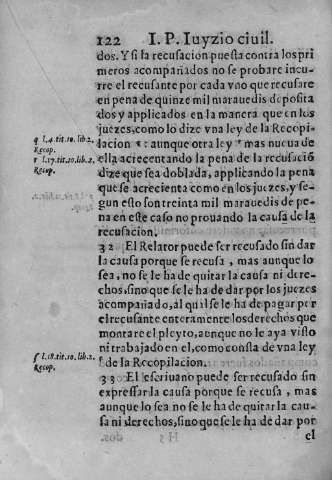 122 I. P. Iuyzio ciuil.
dos. Y si la recusacion puesta contra los pri
meros acompañados no se probare incu-
rre el recusante por cada vno que recusare
en pena de quinze mil marauedis deposita
dos y applicados en la manera que en los
juezes, como lo dize vna ley de la Recopi-
lacion q : aunque otra ley r mas nueua de
ella, acrecentando la pena de la recusaciō
dize que sea doblada, applicando la pena
que se acrecienta como en los juezes, y se-
gun esto son treinta mil marauedis de pe-
na en este caso no prouando la causa de la
recusacion.
32 El Relator puede ser recusado sin dar
la causa porque se recusa, mas aunque lo
sea, no se le ha de quitar la causa ni dere-
chos, sino que se le ha de dar por los juezes
acompañado, al qual se le ha de pagar por
el recusante enteramente los derechos que
montare el pleyto, aunque no le aya visto
ni trabajado en el, como consta de vna ley
ſ de la Recopilacion.
33 El escriuano puede ser recusado sin
expressar la causa porque se recusa, mas
aunque lo sea no se le ha de quitar la cau-
sa ni derechos, sino que se le ha de dar por
el
q l.4.tit.10.lib.2.
Recop.
r l.17.tit.10.lib.2.
Recop.
ſ l.18.tit.10.lib.2.
Recop.